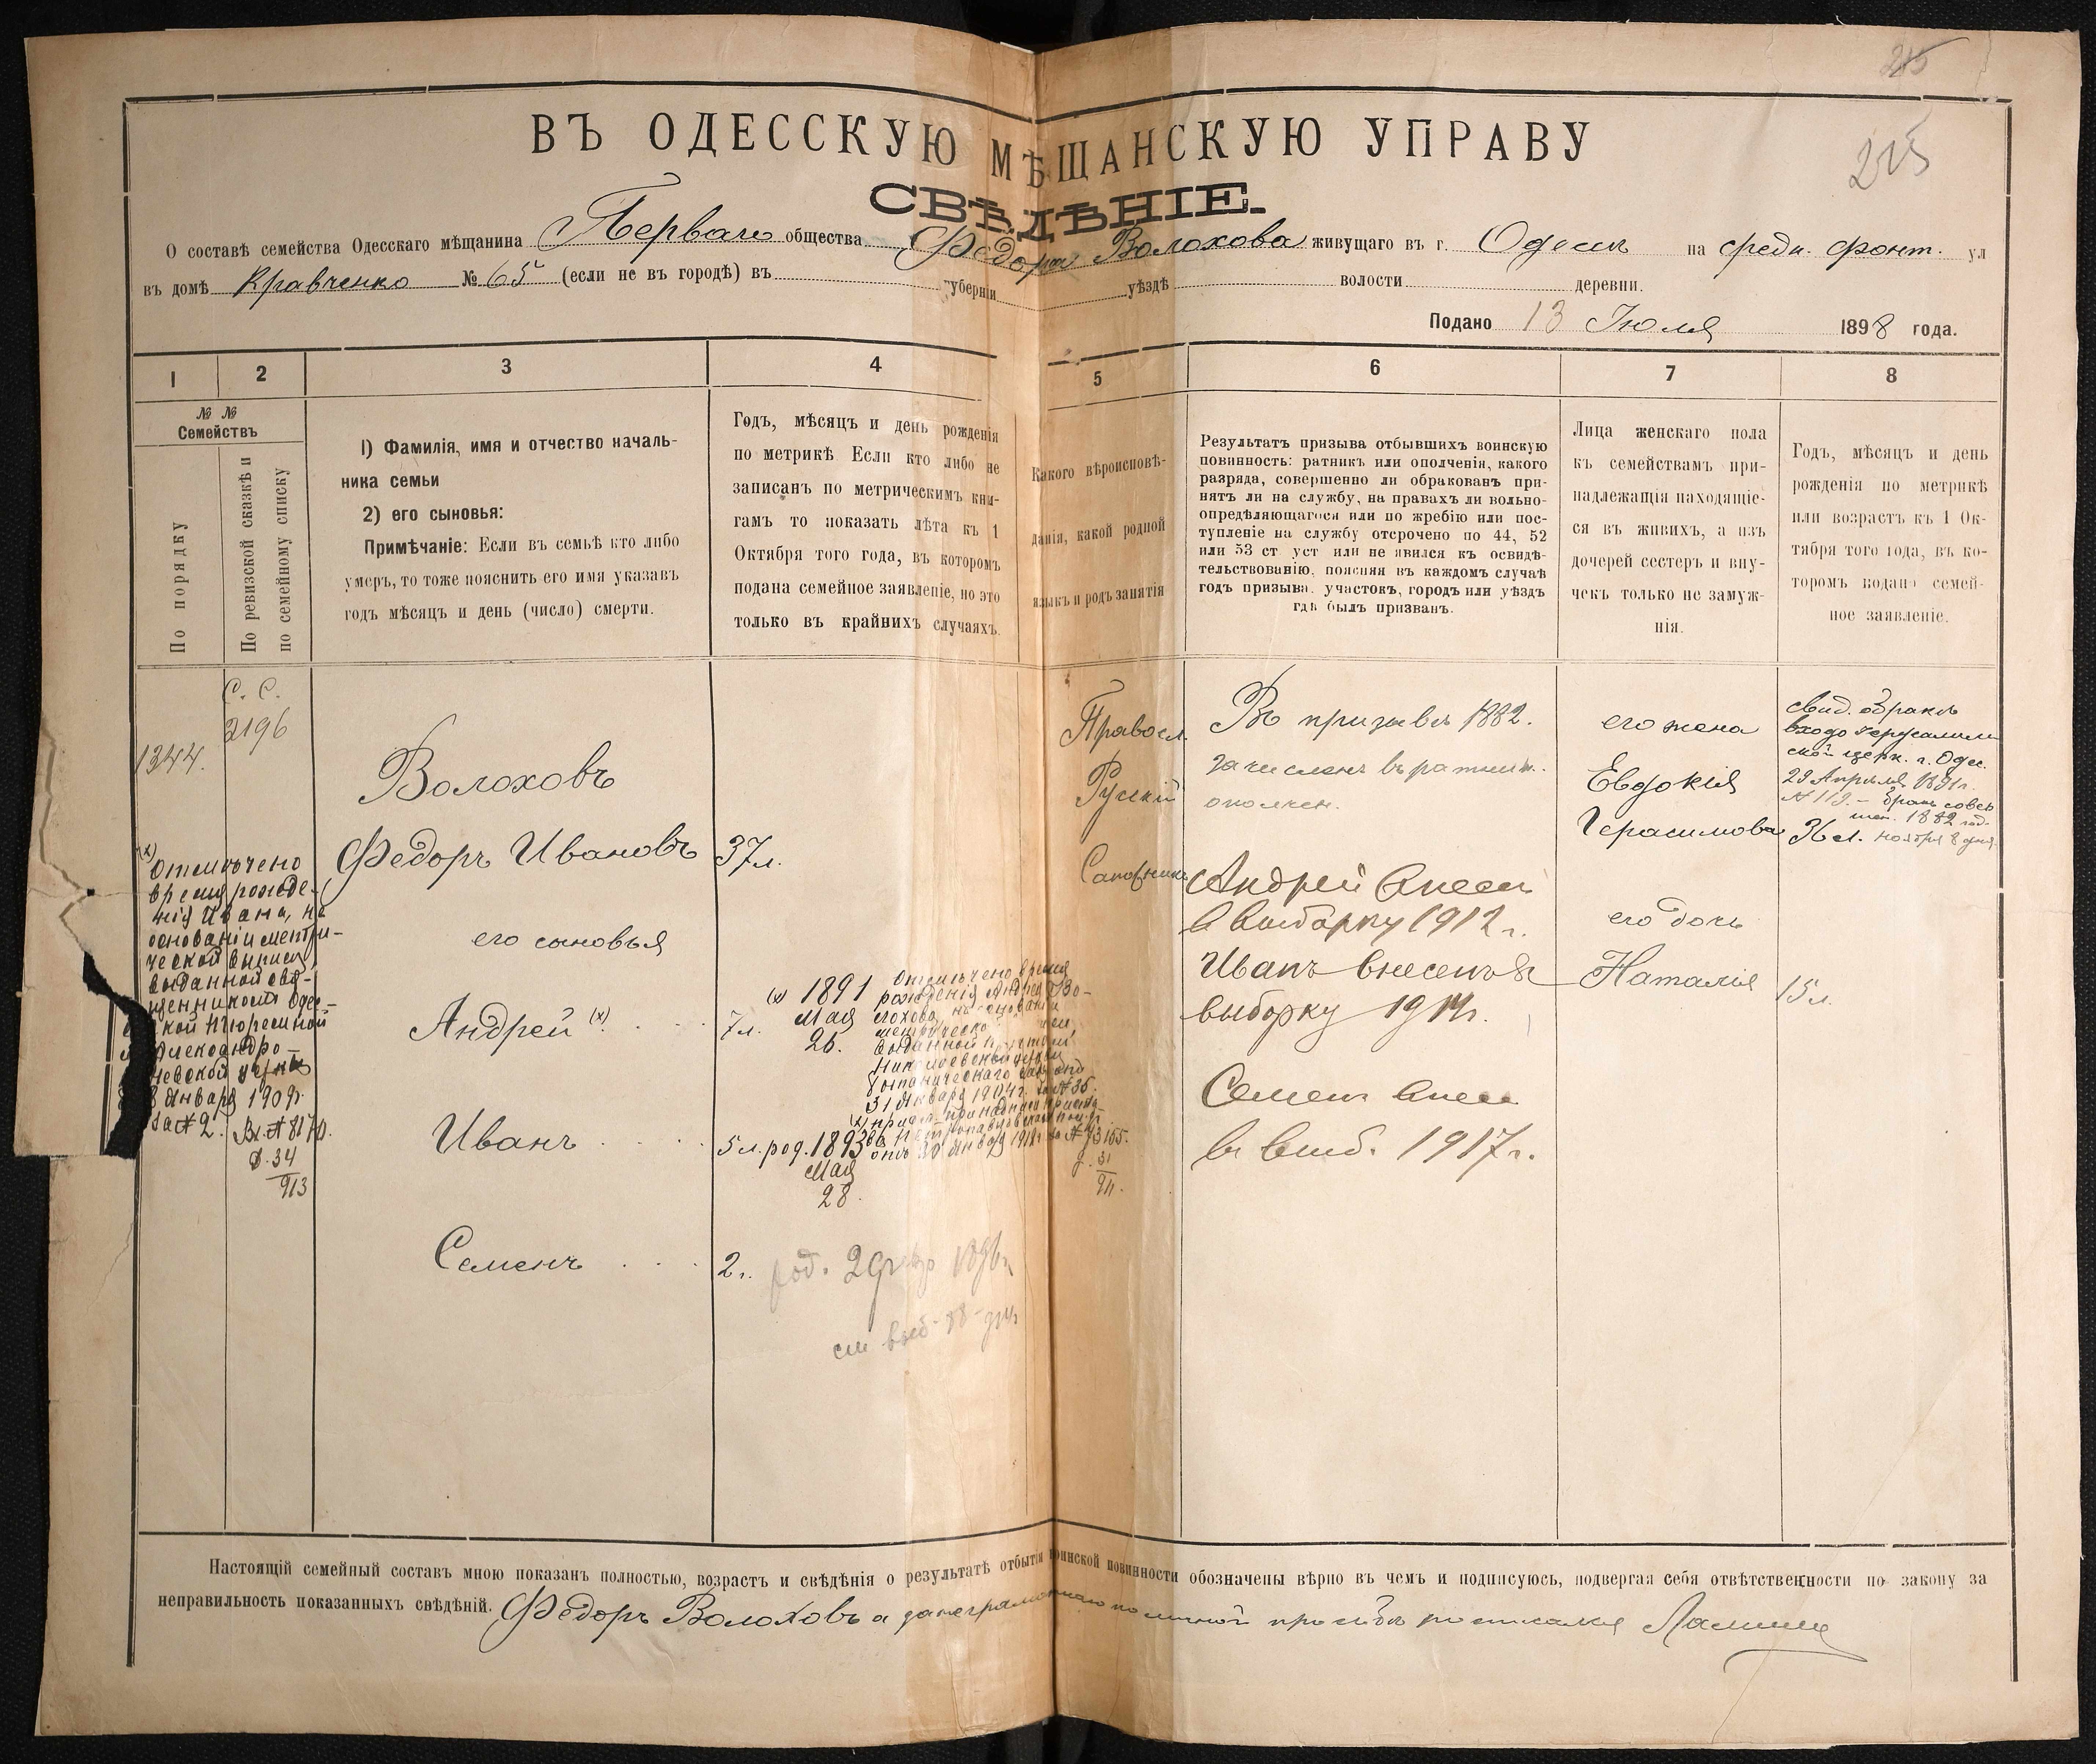 215
215
ВЪ ОДЕССКУЮ МѢЩАНСКУЮ УПРАВУ
СВѢДѢНІЕ.
О составѣ семейства Одесскаго мѣщанина Перваго общества Федора Волохова живущаго въ г. Одессѣ на средн. фонт. ул
въ домѣ Кравченко № 65 (если не въ городѣ) въ губерніи уѣздѣ волости деревни.
Подано 13 Іюля 1898 года.
1 2 3 4 5 6 7 8
№ № Семействъ
По порядку
По ревизской сказкѣ и
по семейному списку
1) Фамилія, имя и отчество началь-
ника семьи
2) его сыновья:
Примѣчаніе: Если въ семьѣ кто либо
умеръ, то тоже пояснить его имя указавъ
годъ мѣсяцъ и день (число) смерти.
Годъ, мѣсяцъ и день рожденія
по метрикѣ. Если кто либо не
записанъ по метрическимъ кни-
гамъ то показать лѣта къ 1
Октября того года, въ которомъ
подана семейное заявленіе, но это
только въ крайнихъ случаяхъ.
Какого вѣроисповѣ-
данія, какой родной
языкъ и родъ занятія
Результатъ призыва отбывшихъ воинскую
повинность: ратникъ или ополченія, какого
разряда, совершенно ли обракованъ при-
нятъ ли на службу, на правахъ ли вольно-
опредѣляющагося или по жребію или пос-
тупленіе на службу отсрочено по 44, 52
или 53 ст уст или не явился къ освидѣ-
тельствованію, поясняя въ каждомъ случаѣ
годъ призыва, участокъ, городъ или уѣздъ
гдѣ былъ призванъ.
Лица женскаго пола
къ семействамъ при-
надлежащія находящіе-
ся въ живихъ, а изъ
дочерей сестеръ и вну-
чекъ только не замуж-
нія.
Годъ, мѣсяцъ и день
рожденія по метрикѣ
или возрастъ къ 1 Ок-
тября того года, въ ко-
торомъ подано семей-
ное заявленіе.
1344.
С. С.
2196
Волоховъ
Федоръ Ивановъ 37 л.
его сыновья
Андрей (х) 7 л.
Иванъ 5 л. род. 1893
Мая
28.
Семенъ 2 г. род.
(х) Отмѣчено
время рожде-
нія Ивана, на
основаніи метри-
ческой выписи,
выданной свя-
щенникомъ Одес-
ской тюремной
Александро-
невской церкви
8 Января 1909 г.
за № 2.
д. 34
913
(х) 1891
Мая
26.
Отмѣчено время
рожденія Андрея Во-
лохова, на основаніи
31 Января 1904 г. за № 36.
Правосл.
Русскій
Сапожникъ
Въ призывъ 1882.
зачисленъ въ ратник.
ополчен.
Андрей внесенъ
въ выборку 1912 г.
Иванъ внесенъ въ
выборку 1914 г.
Семенъ внесен
въ выб. 1917 г.
его жена
Евдокія
Герасимова 36 л.
его дочь
Наталія 15 л.
свид. о бракѣ
входо Іерусалим
ской церк. г. Одес.
29 Апрѣля 1891 г.
№ 119. – бракъ совер
шен. 1882 год.
ноября 8 дня.
Настоящій семейный составъ мною показанъ полностью, возрастъ и свѣдѣнія о результатѣ отбытія воинской повинности обозначены вѣрно въ чемъ и подписуюсь, подвергая себя отвѣтственности по закону за
неправильность показанныхъ свѣдѣній. Федоръ Волоховъ а за неграмотнаго по личной просьбѣ росписался